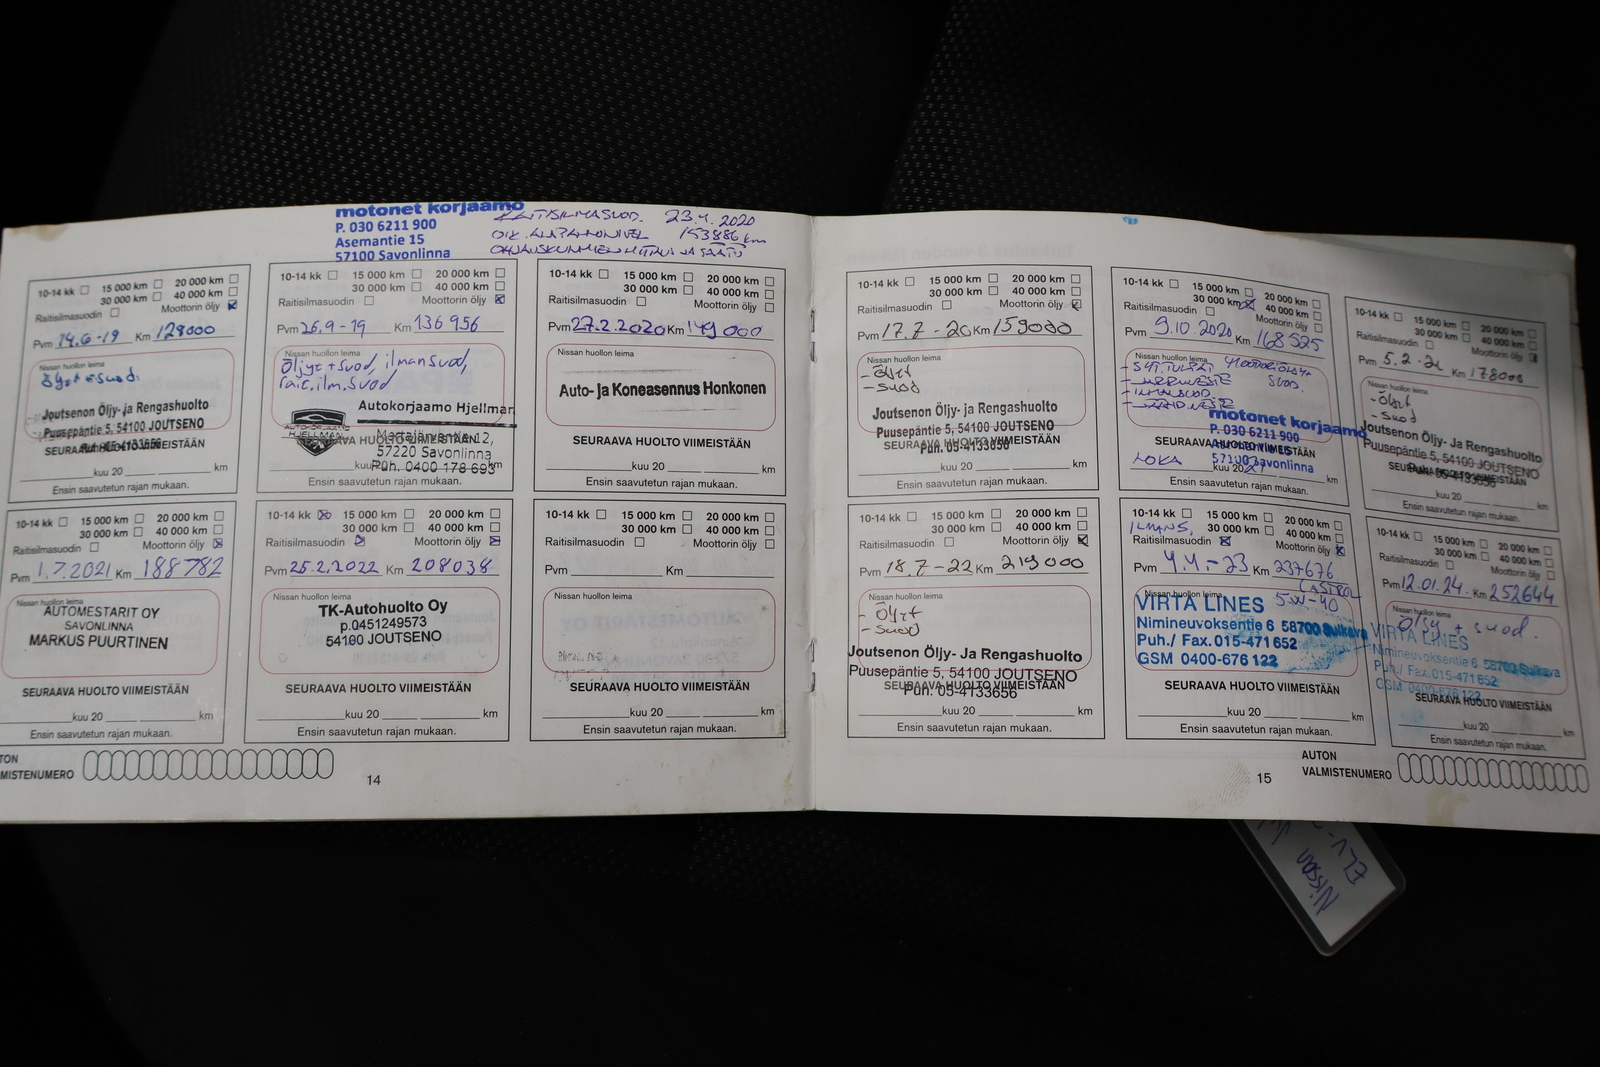 motonet korjaamo
P. 030 6211 900
Asemantie 15
57100 Savonlinna
RAITISILMASUOD. 23.4.2020
OIK. ALAPALLONIVEL 153886 km
OHJAUSKULMIEN MITTAUS JA SÄÄTÖ
10-14 kk 15 000 km 20 000 km
30 000 km 40 000 km
Raitisilmasuodin Moottorin öljy
Pvm 14.6-19 Km 128000
Nissan huollon leima
Öljyt + suod.
Joutsenon Öljy- ja Rengashuolto
Puusepäntie 5, 54100 JOUTSENO
Puh. 05-4133656
SEURAAVA HUOLTO VIIMEISTÄÄN
kuu 20 km
Ensin saavutetun rajan mukaan.
10-14 kk 15 000 km 20 000 km
30 000 km 40 000 km
Raitisilmasuodin Moottorin öljy
Pvm 26.9-19 Km 136 956
Nissan huollon leima
Öljyt + suod, ilmansuod,
rait.ilm.suod
Autokorjaamo Hjellman
Martajänrentie 12,
57220 Savonlinna
Puh. 0400 178 693
SEURAAVA HUOLTO VIIMEISTÄÄN
kuu 20 km
Ensin saavutetun rajan mukaan.
10-14 kk 15 000 km 20 000 km
30 000 km 40 000 km
Raitisilmasuodin Moottorin öljy
Pvm 27.2.2020 Km 149 000
Nissan huollon leima
Auto- ja Koneasennus Honkonen
SEURAAVA HUOLTO VIIMEISTÄÄN
kuu 20 km
Ensin saavutetun rajan mukaan.
10-14 kk 15 000 km 20 000 km
30 000 km 40 000 km
Raitisilmasuodin Moottorin öljy
Pvm 1.7.2021 Km 188782
Nissan huollon leima
AUTOMESTARIT OY
SAVONLINNA
MARKUS PUURTINEN
SEURAAVA HUOLTO VIIMEISTÄÄN
kuu 20 km
Ensin saavutetun rajan mukaan.
10-14 kk 15 000 km 20 000 km
30 000 km 40 000 km
Raitisilmasuodin Moottorin öljy
Pvm 25.2.2022 Km 208038
Nissan huollon leima
TK-Autohuolto Oy
p.0451249573
54100 JOUTSENO
SEURAAVA HUOLTO VIIMEISTÄÄN
kuu 20 km
Ensin saavutetun rajan mukaan.
10-14 kk 15 000 km 20 000 km
30 000 km 40 000 km
Raitisilmasuodin Moottorin öljy
Pvm Km
Nissan huollon leima
SEURAAVA HUOLTO VIIMEISTÄÄN
kuu 20 km
Ensin saavutetun rajan mukaan.
TON
MISTENUMERO
14
10-14 kk 15 000 km 20 000 km
30 000 km 40 000 km
Raitisilmasuodin Moottorin öljy
Pvm 17.7-20 Km 159000
Nissan huollon leima
- Öljyt
- suod
Joutsenon Öljy- ja Rengashuolto
Puusepäntie 5, 54100 JOUTSENO
Puh. 05-4133656
SEURAAVA HUOLTO VIIMEISTÄÄN
kuu 20 km
Ensin saavutetun rajan mukaan.
10-14 kk 15 000 km 20 000 km
30 000 km 40 000 km
Raitisilmasuodin Moottorin öljy
Pvm 9.10.2020 Km 168525
Nissan huollon leima
- SYT.TULPAT MOOTTORIÖLJY+
- JARRUNESTE SUOD.
- ILMANSUOD.
- JÄÄHD.NESTE
motonet korjaamo
P. 030 6211 900
57100 Savonlinna
SEURAAVA HUOLTO VIIMEISTÄÄN
LOKA kuu 2021 km
Ensin saavutetun rajan mukaan.
10-14 kk 15 000 km 20 000 km
30 000 km 40 000 km
Raitisilmasuodin Moottorin öljy
Pvm 5.2-21 Km 178000
Nissan huollon leima
- Öljyt
- suod
Joutsenon Öljy- ja Rengashuolto
Puusepäntie 5, 54100 JOUTSENO
Puh. 05-4133656
SEURAAVA HUOLTO VIIMEISTÄÄN
kuu 20 km
Ensin saavutetun rajan mukaan.
10-14 kk 15 000 km 20 000 km
30 000 km 40 000 km
Raitisilmasuodin Moottorin öljy
Pvm 18.7-22 Km 219000
Nissan huollon leima
- Öljyt
- suod
Joutsenon Öljy- Ja Rengashuolto
Puusepäntie 5, 54100 JOUTSENO
Puh. 05-4133656
SEURAAVA HUOLTO VIIMEISTÄÄN
kuu 20 km
Ensin saavutetun rajan mukaan.
10-14 kk 15 000 km 20 000 km
ILMANS, 30 000 km 40 000 km
Raitisilmasuodin Moottorin öljy
Pvm 4.4.-23 Km 237676
CASTROL
Nissan huollon leima
VIRTA LINES 5W-40
Nimineuvoksentie 6 58700 Sulkava
Puh./ Fax. 015-471 652
GSM 0400-676 122
SEURAAVA HUOLTO VIIMEISTÄÄN
kuu 20 km
Ensin saavutetun rajan mukaan.
10-14 kk 15 000 km 20 000 km
30 000 km 40 000 km
Raitisilmasuodin Moottorin öljy
Pvm 12.01.24. Km 252644
Nissan huollon leima
Öljy + suod.
VIRTA LINES
Nimineuvoksentie 6 58700 Sulkava
Puh./ Fax. 015-471 652
GSM 0400-676 122
SEURAAVA HUOLTO VIIMEISTÄÄN
kuu 20 km
Ensin saavutetun rajan mukaan.
AUTON
VALMISTENUMERO
15
Nissan